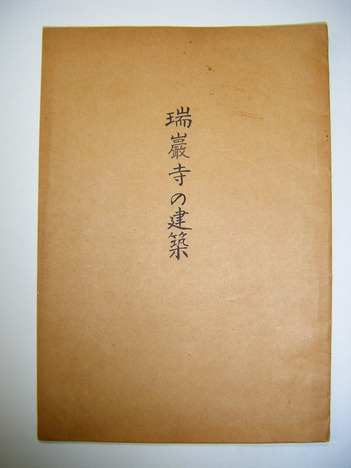 瑞巖寺の建築